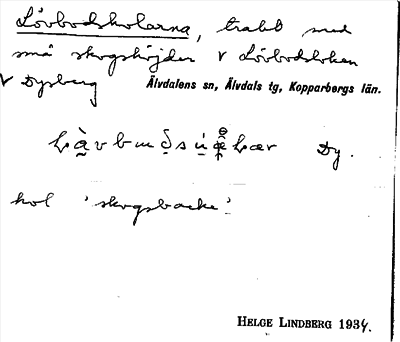 Lövbodskolarna, trakt med
små skogshöjder v Lövbodsloken
v Dysberg Älvdalens sn, Älvdals tg, Kopparbergs län.
Dy.
kol 'skogsbacke'.
HELGE LINDBERG 1934.